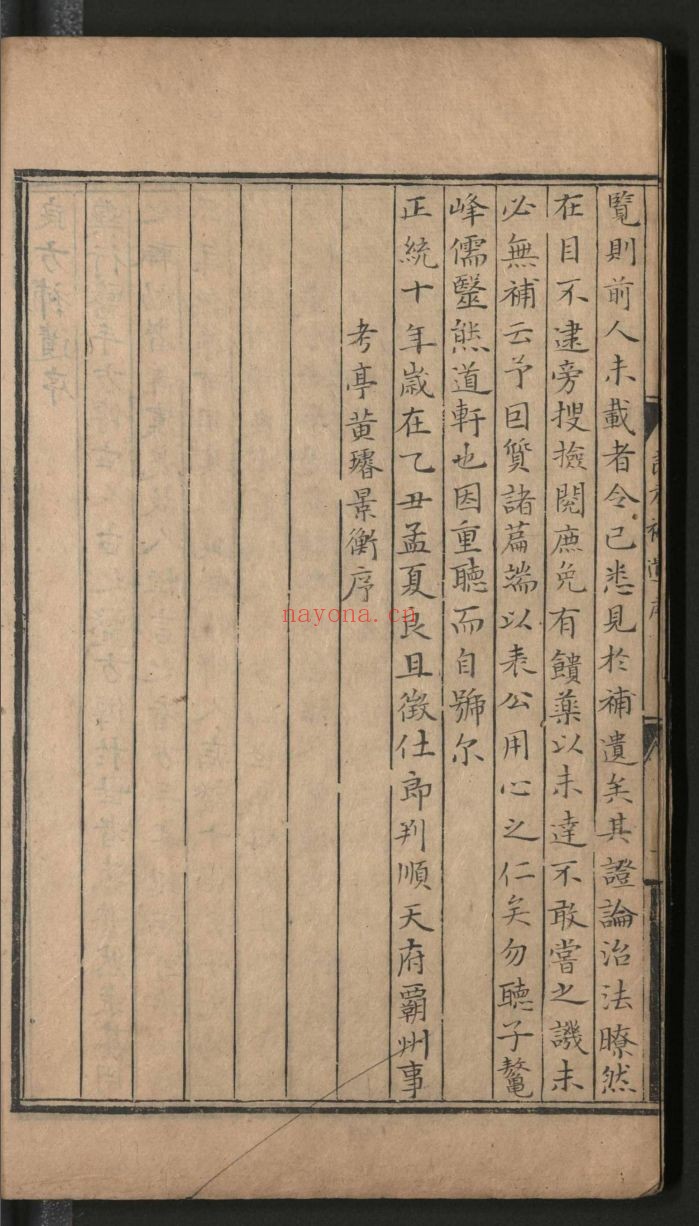 覽則前人未載者今已悉見於補遺矣其證論治法瞭然
在目不逮旁搜撿閱庶免有饋藥以未達不敢嘗之譏未
必無補云予因質諸篇端以表公用心之仁矣勿聽子鼇
峰儒毉熊道軒也因重聽而自號尔
正統十年歲在乙丑孟夏良旦徵仕郎判順天府霸州事
考亭黃璿景衡序
nayona.cn